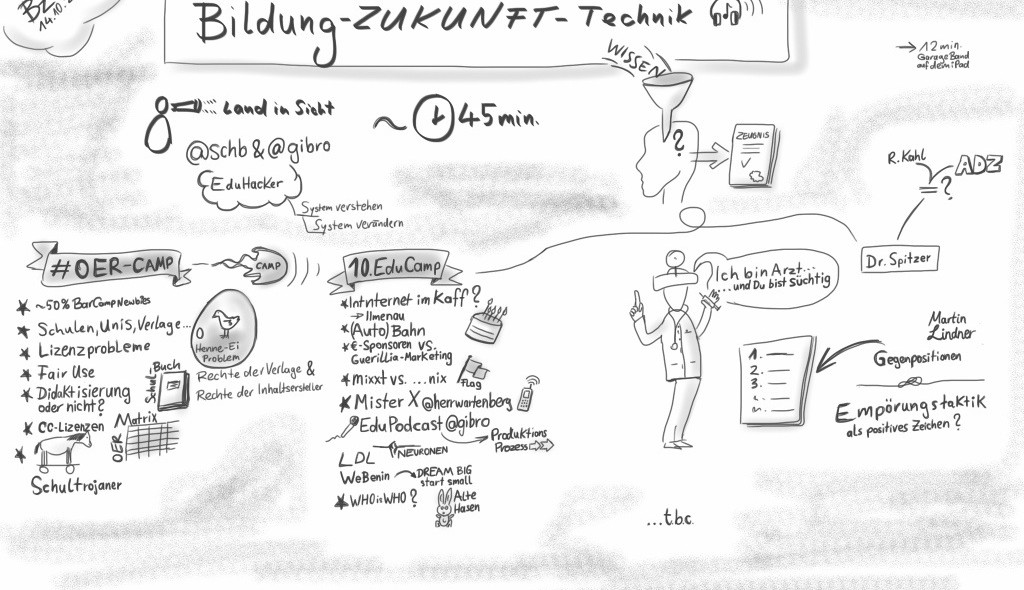 BZT
14.10.
Bildung-ZUKUNFT-Technik
→ 12 min.
GarageBand
auf dem iPad
WISSEN
Land in Sicht
~ 45 min.
?
ZEUGNIS
@schb & @gibro
EduHacker
System verstehen
System verändern
R. Kahl
ADZ
= ?
Dr. Spitzer
#OER-CAMP
CAMP
~50% BarCampNewbies
Schulen, Unis, Verlage...
Lizenzprobleme
Fair Use
Didaktisierung
oder nicht?
CC-Lizenzen
Schultrojaner
Henne-Ei
Problem
Schul
Buch
Rechte der Verlage &
Rechte der Inhaltsersteller
OER
Matrix
10.EduCamp
Intnternet im Kaff?
→ Ilmenau
(Auto)Bahn
€-Sponsoren vs.
Guerillia-Marketing
mixxt vs. ...nix
Flag
Mister X @herrwartenberg
EduPodcast @gibro
Produktions
Prozess
LDL
NEURONEN
WeBenin
DREAM BIG
start small
WHO is WHO?
Alte
Hasen
Ich bin Arzt...
...und Du bist süchtig
1.
2.
3.
Martin
Lindner
Gegenpositionen
Empörungstaktik
als positives Zeichen?
...t.b.c.